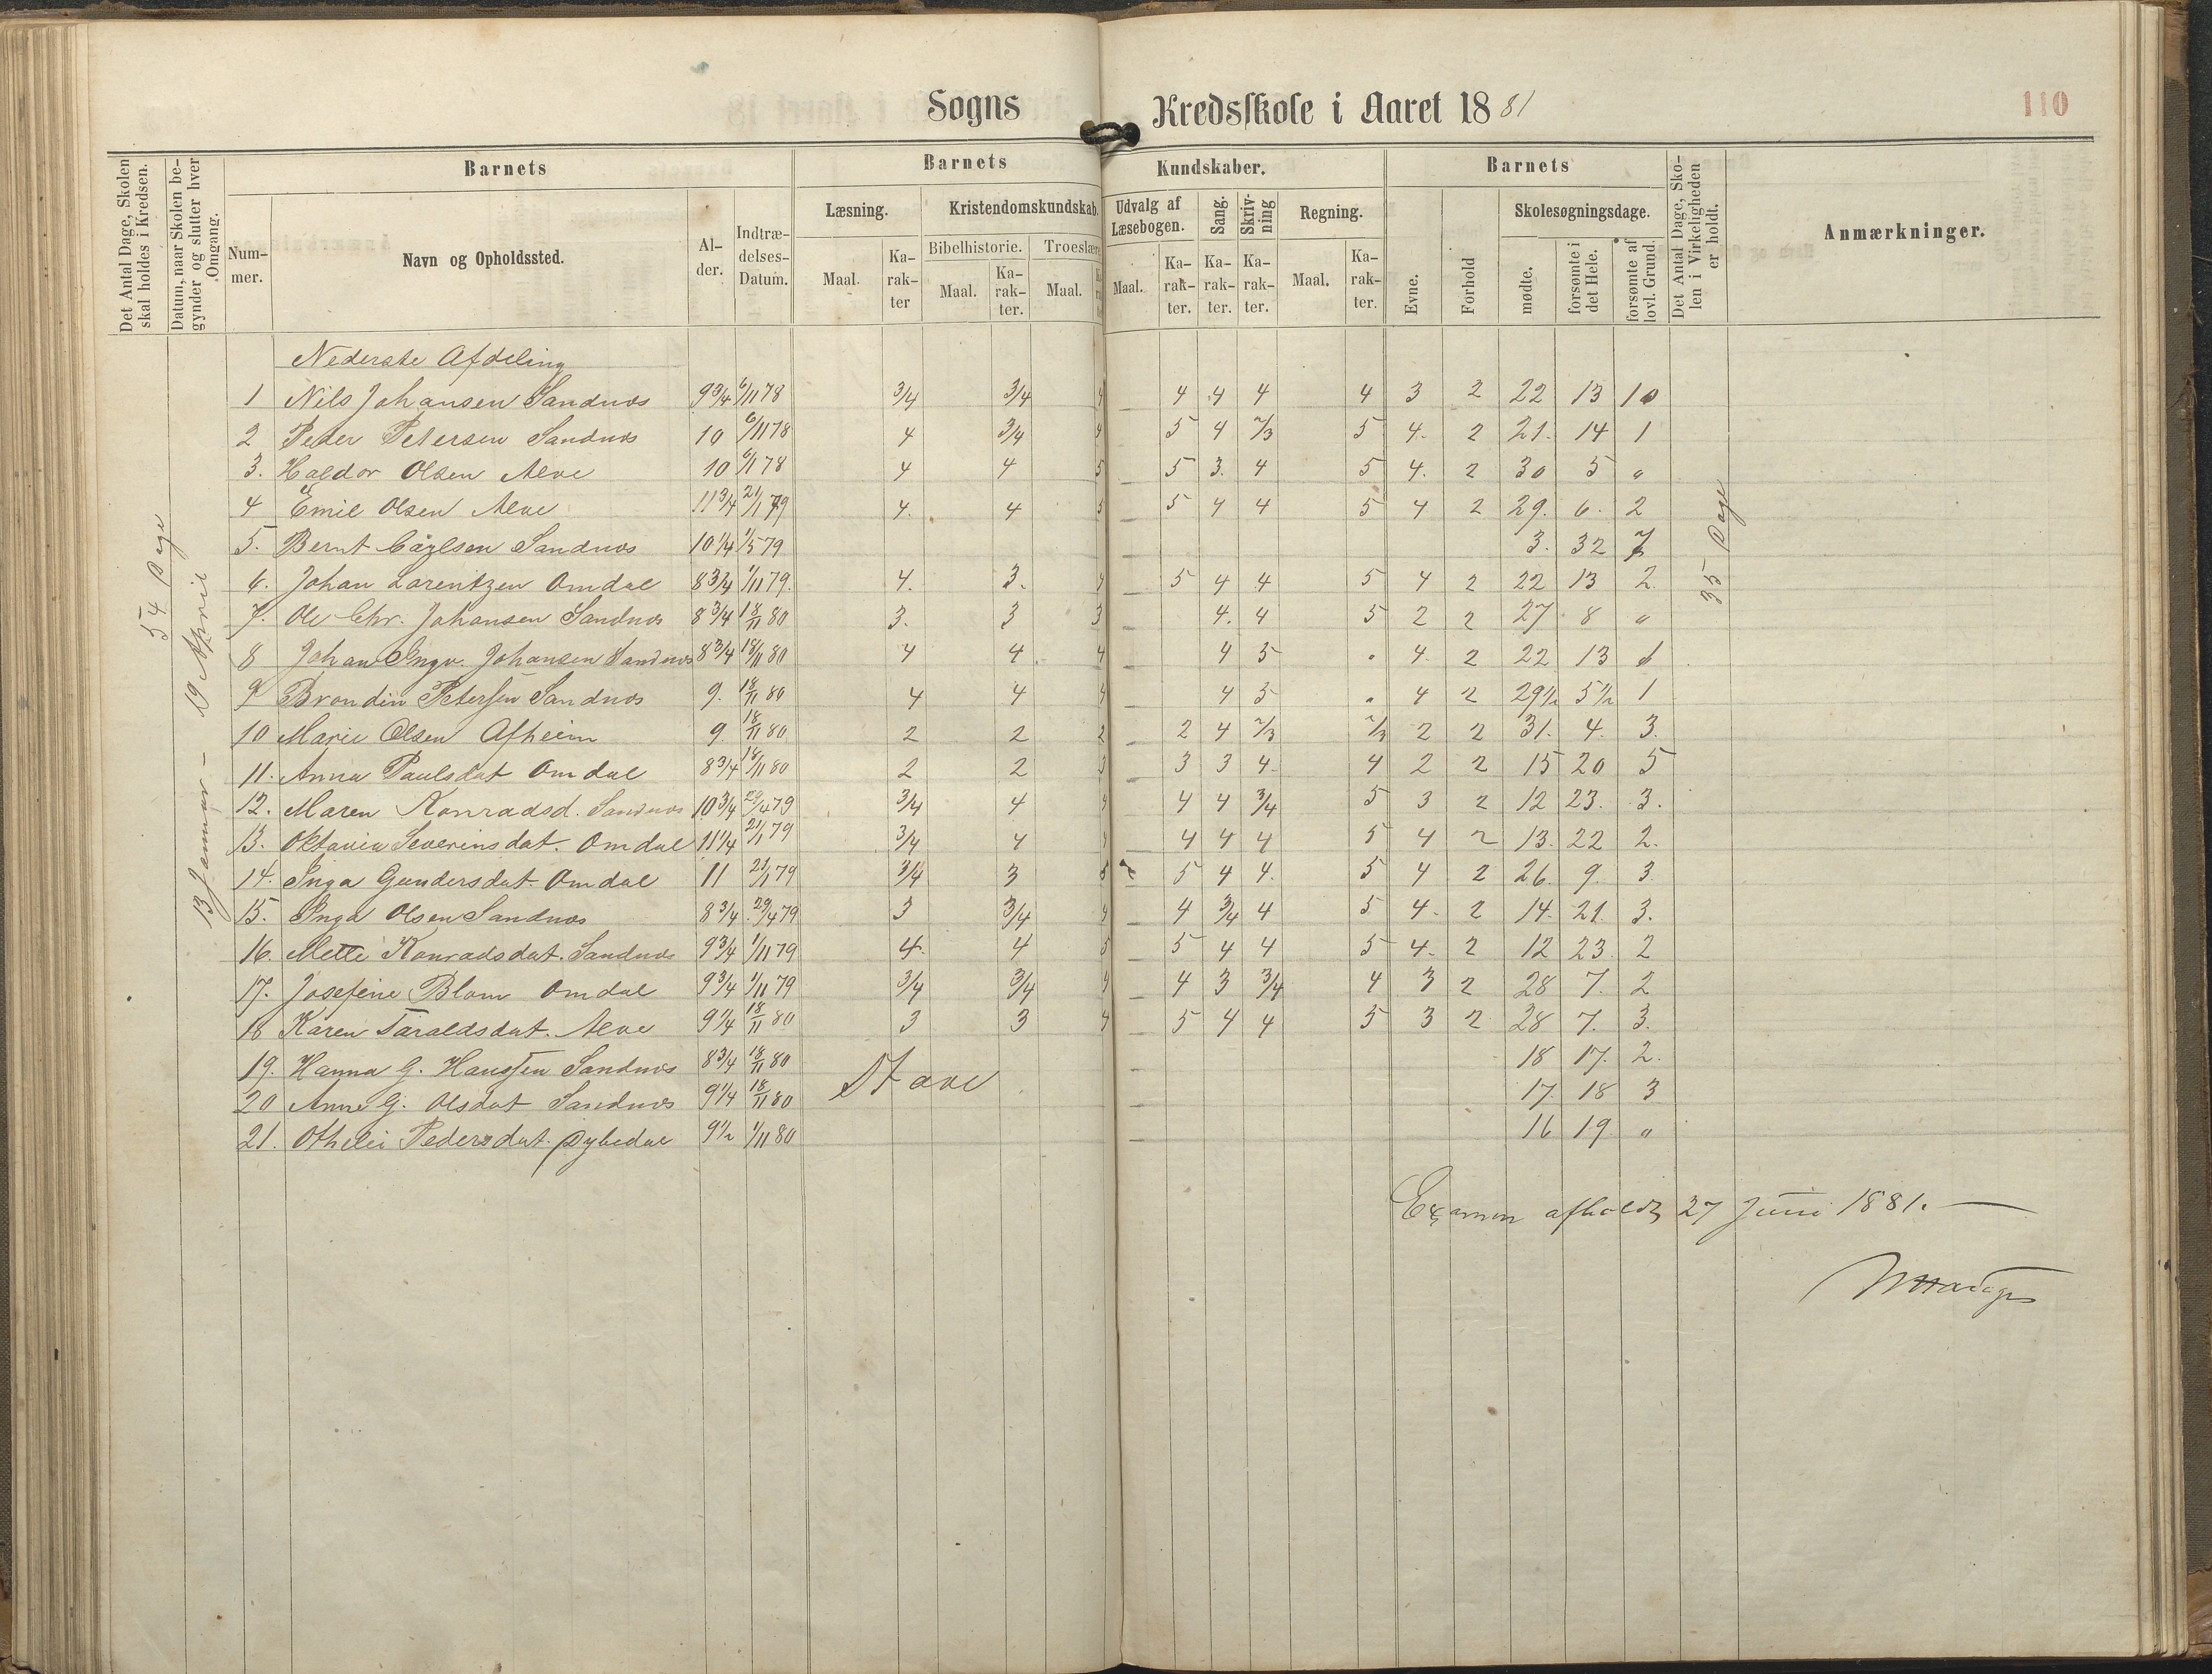 Sogns Kredsskole i Aaret 1881
110
Det Antal Dage, Skolen skal holdes i Kredsen.
Datum, naar Skolen begynder og slutter hver Omgang.
Barnets
Nummer.
Navn og Opholdssted.
Alder.
Indtrædelses-Datum.
Barnets Kundskaber.
Læsning.
Maal.
Karakter
Kristendomskundskab.
Bibelhistorie.
Maal.
Karakter.
Troeslære
Maal.
Udvalg af Læsebogen.
Maal.
Karakter.
Sang.
Karakter.
Skrivning
Karakter.
Regning.
Maal.
Karakter.
Barnets
Evne.
Forhold
Skolesøgningsdage.
mødte.
forsømte i det Hele.
forsømte af lovl. Grund.
Det Antal Dage, Skolen i Virkeligheden er holdt.
Anmærkninger.
54 Dage
13 Januar – 19 April
35 Dage
Nederste Afdeling
1 Nils Johansen Sandnes 9 3/4 6/11 78 3/4 3/4 4 4 4 4 4 3 2 22 13 10
2 Peder Petersen Sandnes 10 6/11 78 4 3/4 4 5 4 2/3 5 4. 2 21. 14 1
3. Haldor Olsen Alve 10 6/11 78 4 4 5 5 3. 4 5 4. 2 30 5 "
4 Emil Olsen Alve 11 3/4 21/1 79 4. 4 5 5 4 4 5 4 2 29. 6. 2
5. Bernt Sandnes 10 1/4 1/5 79 3. 32 7
6. Johan Lorentzen Omdal 8 3/4 1/11 79. 4. 3. 4 5 4 4 5 4 2 22 13 2
7. Ole Chr. Johansen Sandnes 8 3/4 18/11 80 3. 3 3 4. 4 5 2 2 27 8 "
8 Johan Ingv. Johansen Sandnes 8 3/4 18/11 80 4 4 4 4 5 " 4. 2 22 13 1
9 Brondin Petersen Sandnes 9. 18/11 80 4 4 4 4 5 " 4 2 29 1/2 5 1/2 1
10 Marie Olsen Afheim 9 18/11 80 2 2 2 2 4 2/3 2/3 2 2 31. 4. 3.
11. Anna Paulsdat Omdal 8 3/4 18/11 80 2 2 3 3 3 4. 4 2 2 15 20 5
12. Maren Konradsd. Sandnes 10 3/4 29/4 79 3/4 4 4 4 4 3/4 5 3 2 12 23. 3.
13. Oktavia Severinsdat. Omdal 11 1/4 21/1 79 3/4 4 4 4 4 4 5 4 2 13. 22 2.
14. Inga Gundersdat. Omdal 11 21/1 79 3/4 3 5 5 4 4. 5 4 2 26. 9. 3
15. Inga Olsen Sandnes 8 3/4 29/4 79 3 3/4 4 4 3/4 4 5 4. 2 14. 21. 3.
16. Mette Konradsdat. Sandnes 9 3/4 1/11 79 4. 4 5 5 4 4 5 4. 2 12 23. 2
17. Josefine Blom Omdal 9 3/4 1/11 79 3/4 3/4 4 4 3 3/4 4 3 2 28 7. 2
18 Karen Taraldsdat. Alve 9 1/4 18/11 80 3 3 4 5 4 4 5 3 2 28 7. 3.
19. Hanna G. Hansen Sandnes 8 3/4 18/11 80 Stave 18 17. 2.
20 Anne G. Olsdat Sandnes 9 1/4 18/11 80 17. 18 3
21. Othelie Pedersdat. Dybedal 9 1/2 1/11 80 16 19 "
Examen afholdt 27 Juni 1881. —